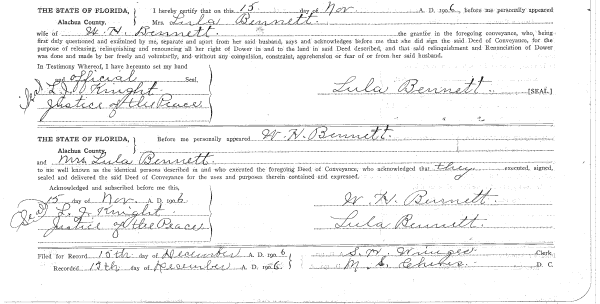 THE STATE OF FLORIDA, I hereby certify that on this 15 day of Nov A. D. 1906, before me personally appeared
Alachua County. Mrs. Lula Bennett
wife of W. H. Bennett. the grantor in the foregoing conveyance, who, being
first duly questioned and examined by me, separate and apart from her said husband, says and acknowledges before me that she did sign the said Deed of Conveyance, for the
purpose of releasing, relinquishing and renouncing all her right of Dower in and to the land in said Deed described, and that said relinquishment and Renunciation of Dower
was done and made by her freely and voluntarily, and without any compulsion, constraint, apprehension or fear of or from her said husband.
In Testimony Whereof, I have hereunto set my hand
and official Seal,
Seal L. J. Knight Lula Bennett [SEAL]
Justice of the Peace
THE STATE OF FLORIDA, Before me personally appeared W. H. Bennett.
Alachua County.
and Mrs Lula Bennett
to me well known as the identical persons described in and who executed the foregoing Deed of Conveyance, who acknowledged that they executed, signed,
sealed and delivered the said Deed of Conveyance for the uses and purposes therein contained and expressed.
Acknowledged and subscribed before me this,
15 day of Nov. A. D. 1906 W. H. Bennett.
Seal L. J. Knight. Lula Bennett.
Justice of the Peace
Filed for Record 10th day of December A. D. 1906 S. H. Wienges Clerk
Recorded 12th day of December A. D. 1906. M. S. D. C.